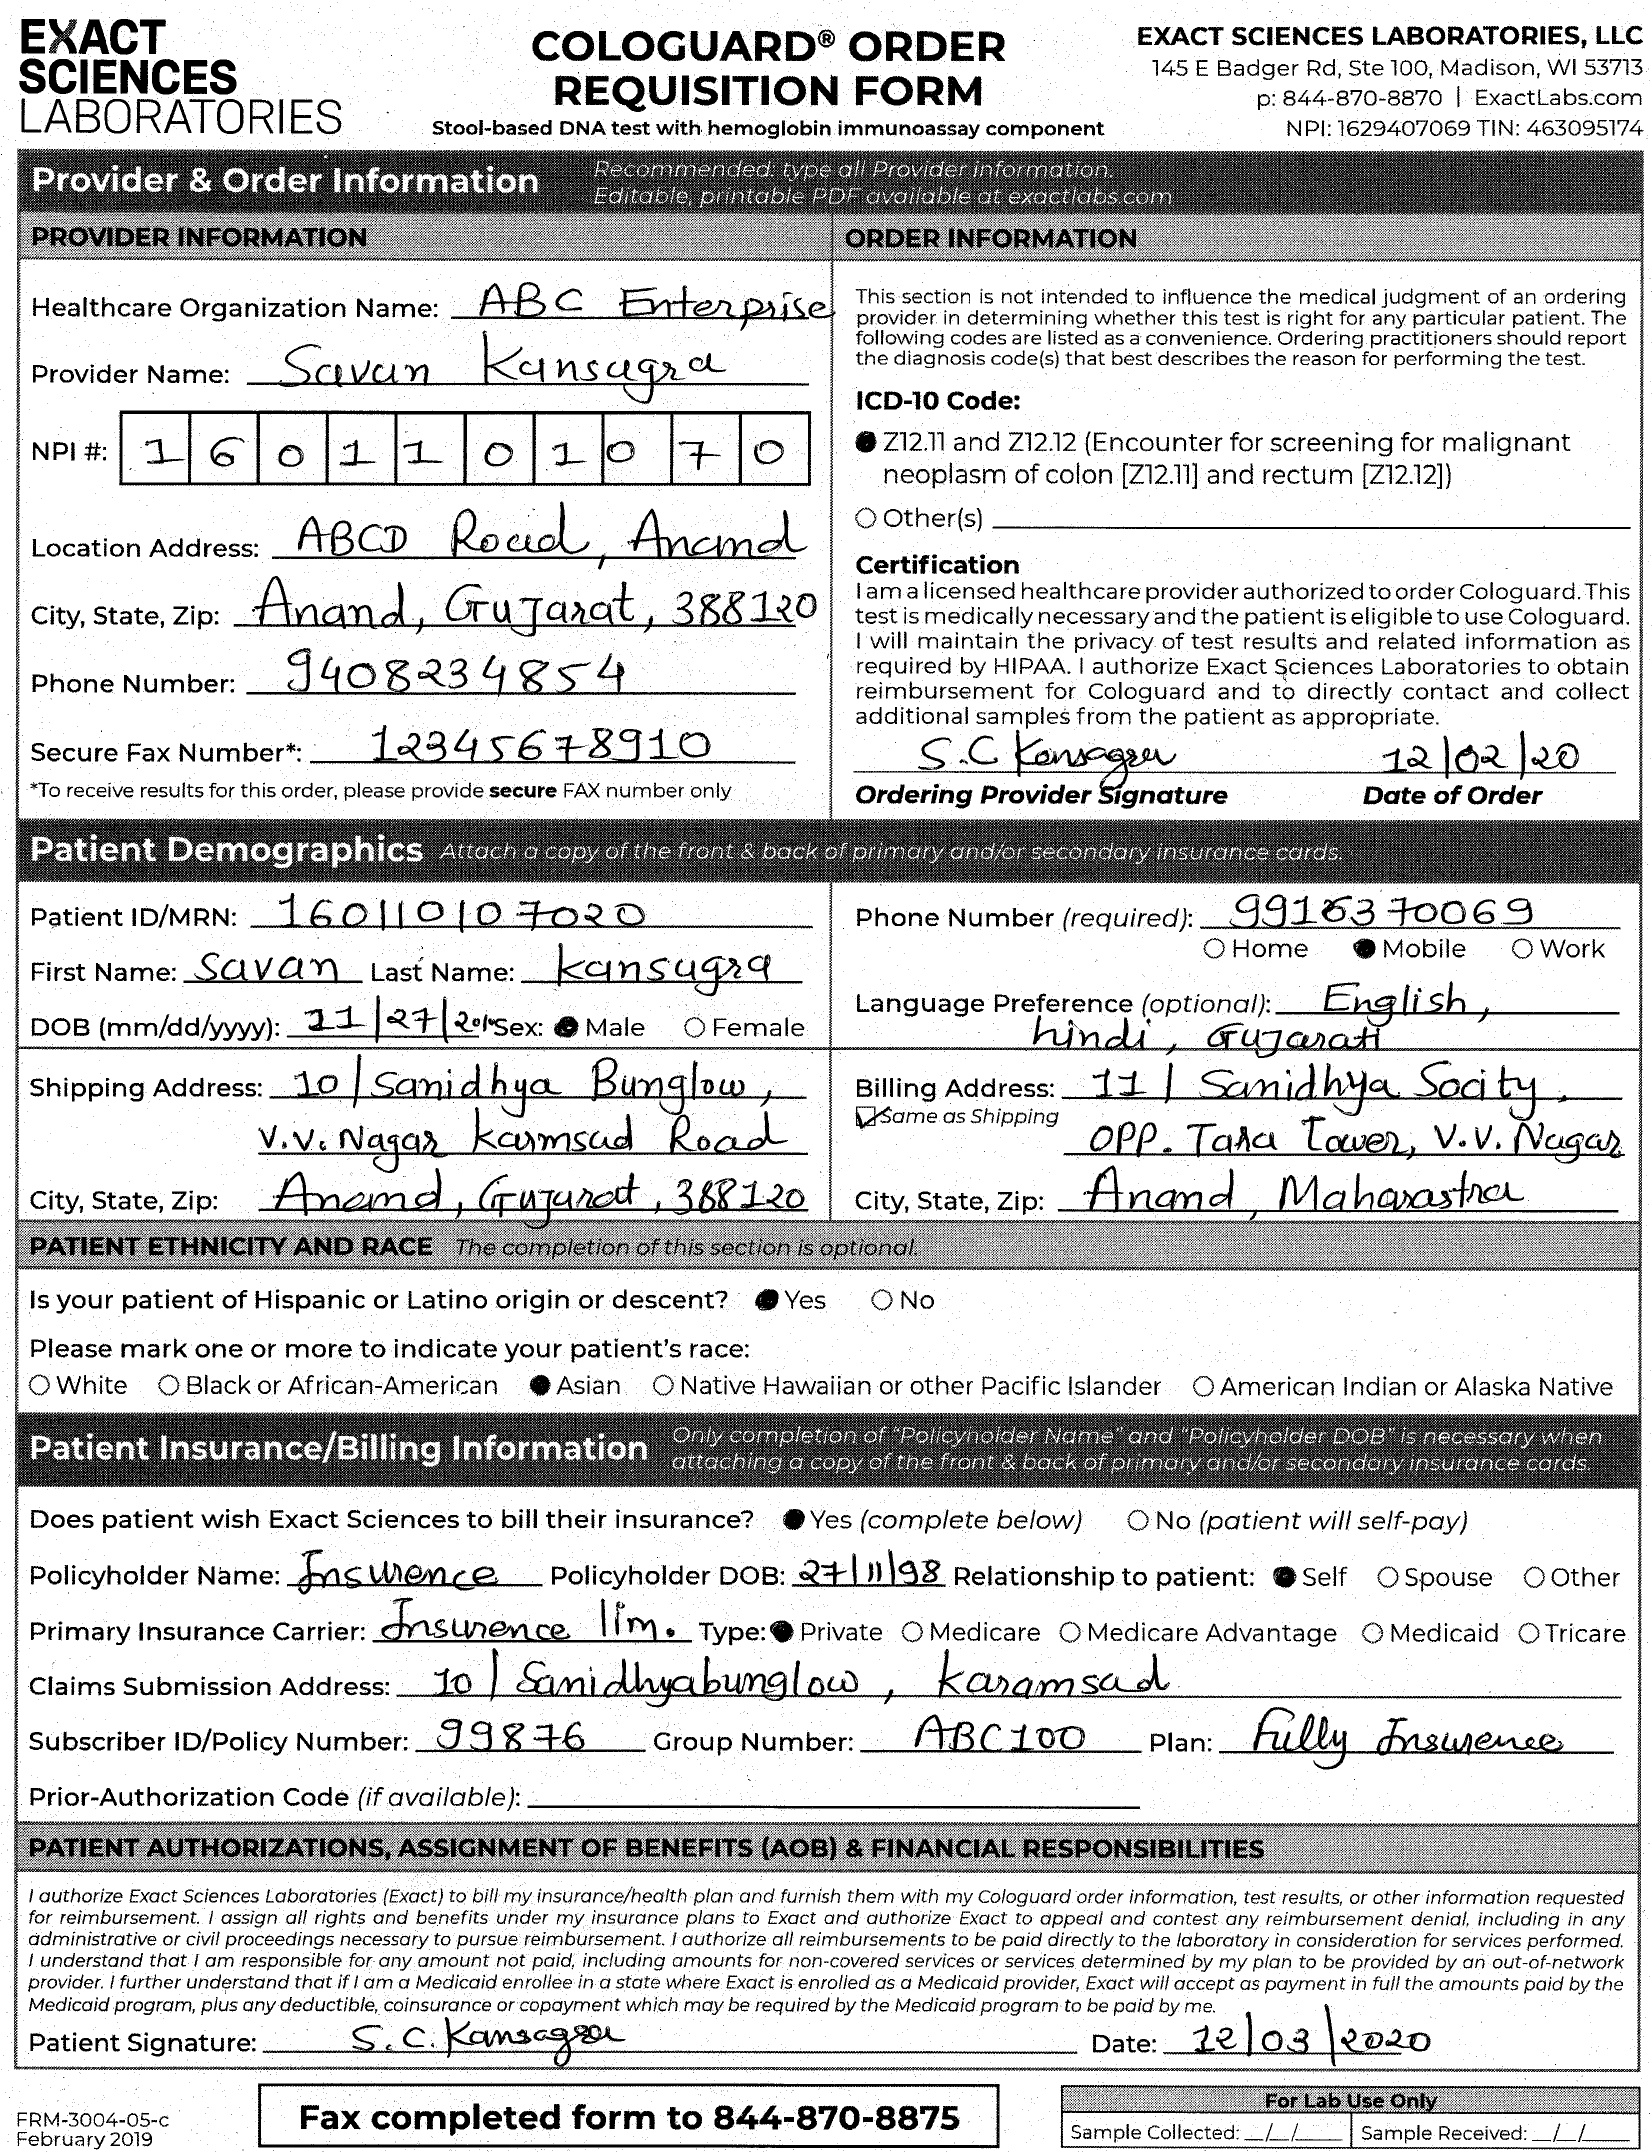 EXACT
SCIENCES
LABORATORIES
COLOGUARD® ORDER
REQUISITION FORM
Stool-based DNA test with hemoglobin immunoassay component
EXACT SCIENCES LABORATORIES, LLC
145 E Badger Rd, Ste 100, Madison, WI 53713
p: 844-870-8870 | ExactLabs.com
NPI: 1629407069 TIN: 463095174
Provider & Order Information
Recommended: type all Provider information.
Editable, printable PDF available at exactlabs.com
PROVIDER INFORMATION
Healthcare Organization Name: ABC Enterprise
Provider Name: Savan Kansagra
NPI #: 1 6 0 1 1 0 1 0 7 0
Location Address: ABCD Road, Anand
City, State, Zip: Anand, Gujarat, 388120
Phone Number: 9408234854
Secure Fax Number*: 12345678910
*To receive results for this order, please provide secure FAX number only
ORDER INFORMATION
This section is not intended to influence the medical judgment of an ordering
provider in determining whether this test is right for any particular patient. The
following codes are listed as a convenience. Ordering practitioners should report
the diagnosis code(s) that best describes the reason for performing the test.
ICD-10 Code:
Z12.11 and Z12.12 (Encounter for screening for malignant
neoplasm of colon [Z12.11] and rectum [Z12.12])
Other(s)
Certification
I am a licensed healthcare provider authorized to order Cologuard. This
test is medically necessary and the patient is eligible to use Cologuard.
I will maintain the privacy of test results and related information as
required by HIPAA. I authorize Exact Sciences Laboratories to obtain
reimbursement for Cologuard and to directly contact and collect
additional samples from the patient as appropriate.
S.C Kansagra 12/02/20
Ordering Provider Signature Date of Order
Patient Demographics Attach a copy of the front & back of primary and/or secondary insurance cards.
Patient ID/MRN: 160110107020
First Name: Savan Last Name: kansagra
DOB (mm/dd/yyyy): 11/27/ Sex: Male Female
Phone Number (required):
Home Mobile Work
Language Preference (optional): English,
hindi, Gujarati
Shipping Address: 10/Sanidhya Bunglow,
V.V. Nagar Karmsad Road
City, State, Zip: Anand, Gujarat, 388120
Billing Address: 11/ Sanidhya Socity,
Same as Shipping
OPP. Tara Tower, V.V. Nagar
City, State, Zip: Anand, Maharastra
PATIENT ETHNICITY AND RACE The completion of this section is optional.
Is your patient of Hispanic or Latino origin or descent? Yes No
Please mark one or more to indicate your patient's race:
White Black or African-American Asian Native Hawaiian or other Pacific Islander American Indian or Alaska Native
Patient Insurance/Billing Information
Only completion of "Policyholder Name" and "Policyholder DOB" is necessary when
attaching a copy of the front & back of primary and/or secondary insurance cards.
Does patient wish Exact Sciences to bill their insurance? Yes (complete below) No (patient will self-pay)
Policyholder Name: Insurence Policyholder DOB: 27/11/98 Relationship to patient: Self Spouse Other
Primary Insurance Carrier: Insurence lim. Type: Private Medicare Medicare Advantage Medicaid Tricare
Claims Submission Address: 10/Sanidhyabunglow, Karamsad
Subscriber ID/Policy Number: 99876 Group Number: ABC100 Plan: Fully Insurence
Prior-Authorization Code (if available):
PATIENT AUTHORIZATIONS, ASSIGNMENT OF BENEFITS (AOB) & FINANCIAL RESPONSIBILITIES
I authorize Exact Sciences Laboratories (Exact) to bill my insurance/health plan and furnish them with my Cologuard order information, test results, or other information requested
for reimbursement. I assign all rights and benefits under my insurance plans to Exact and authorize Exact to appeal and contest any reimbursement denial, including in any
administrative or civil proceedings necessary to pursue reimbursement. I authorize all reimbursements to be paid directly to the laboratory in consideration for services performed.
I understand that I am responsible for any amount not paid, including amounts for non-covered services or services determined by my plan to be provided by an out-of-network
provider. I further understand that if I am a Medicaid enrollee in a state where Exact is enrolled as a Medicaid provider, Exact will accept as payment in full the amounts paid by the
Medicaid program, plus any deductible, coinsurance or copayment which may be required by the Medicaid program to be paid by me.
Patient Signature: S.C. Kansagra Date: 12/03/2020
FRM-3004-05-c
February 2019
Fax completed form to 844-870-8875
For Lab Use Only
Sample Collected: _/_/_ Sample Received: _/_/_